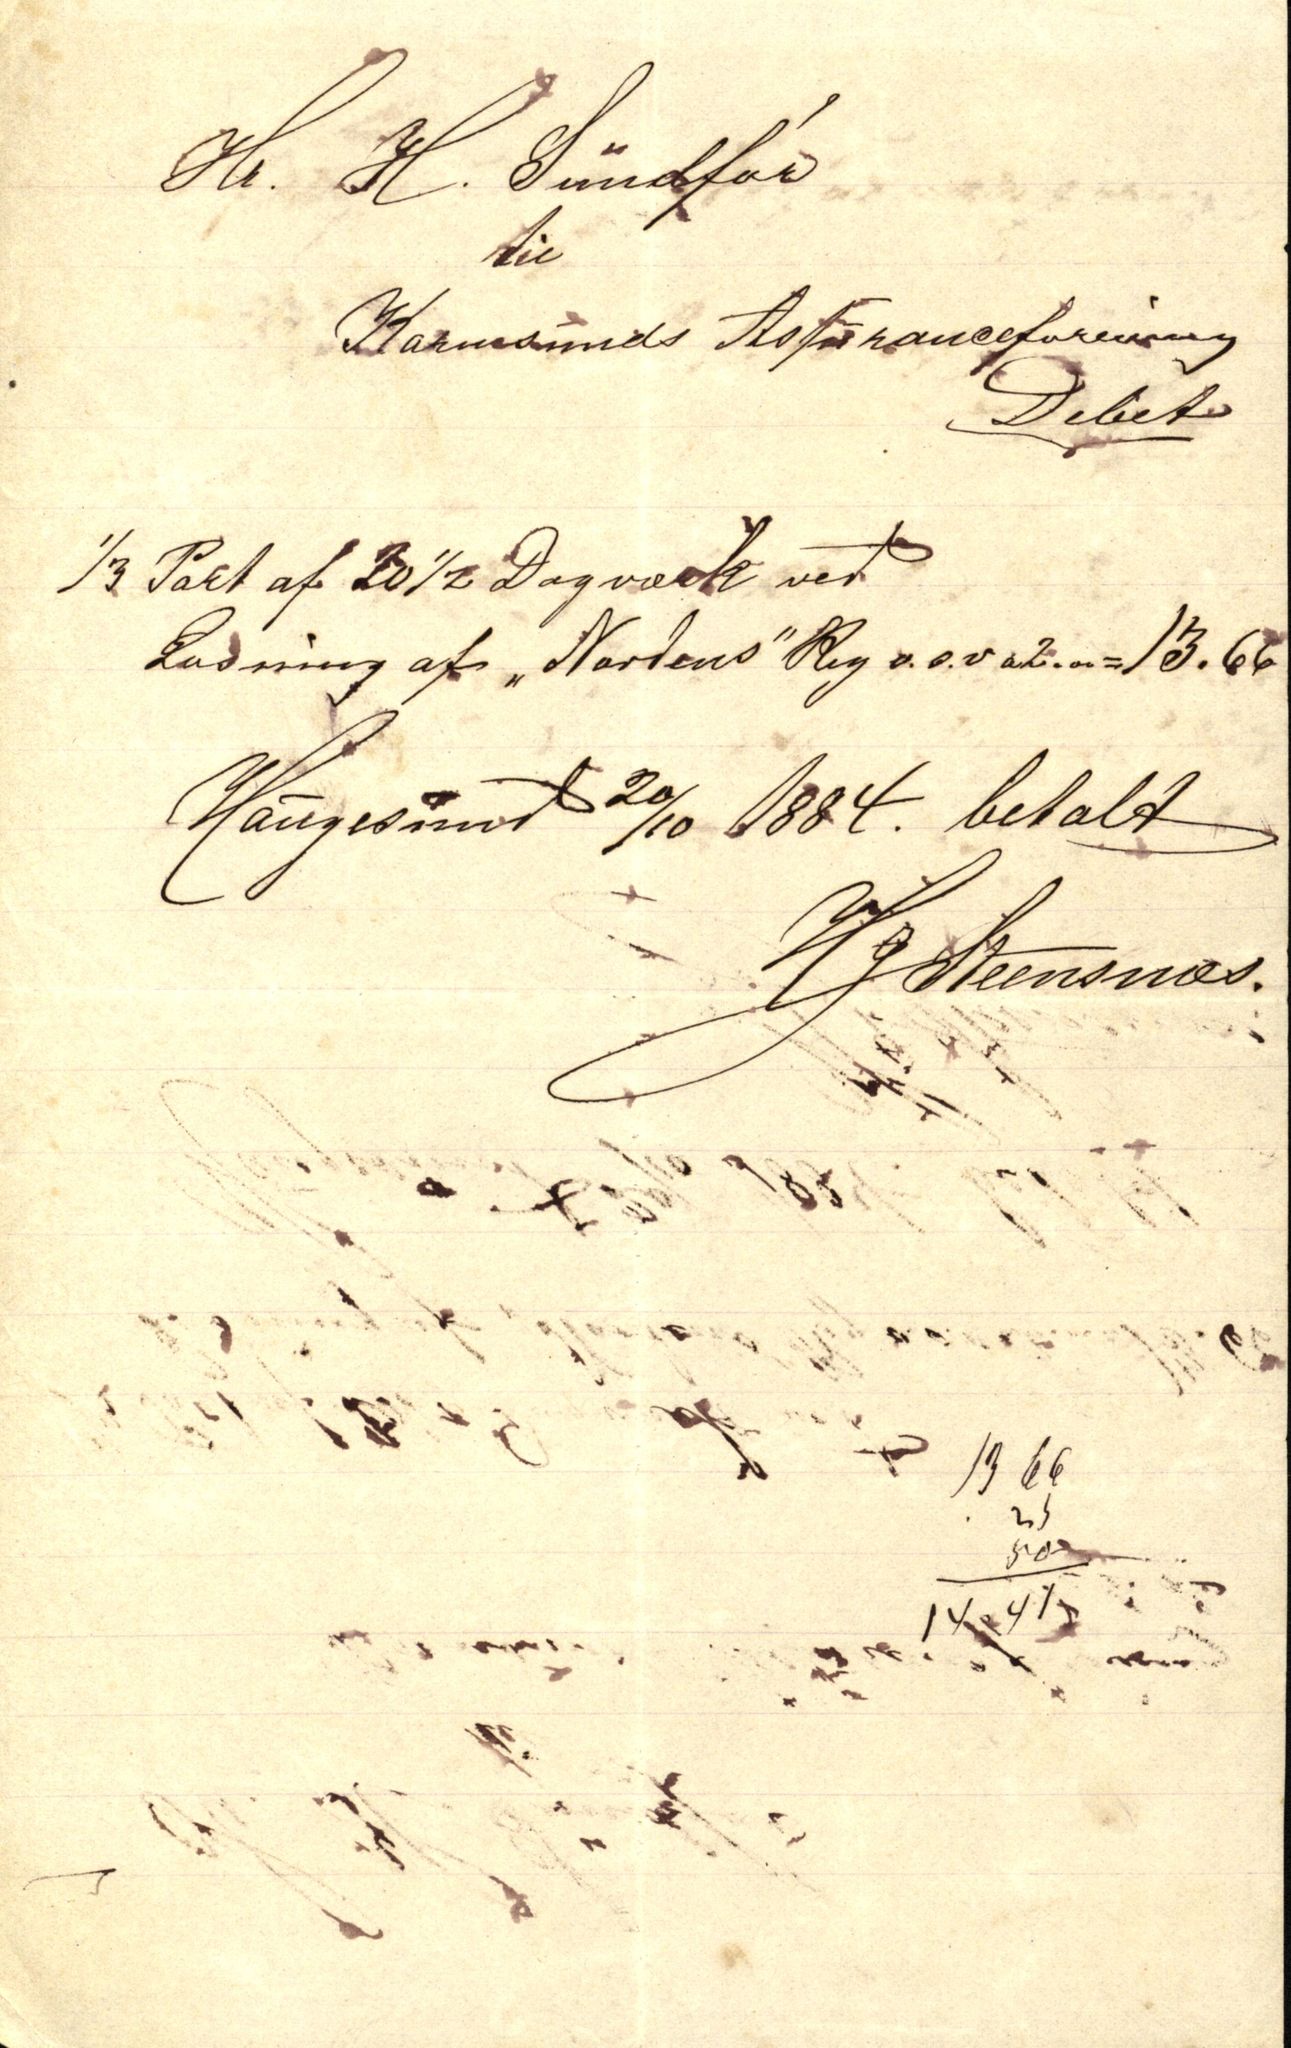 Hr. H. Sündför
til
Karmsunds Assuranceforening
Debet
1/3 Part af 20 1/2 Dagværk ved
Losning af „Nordens" Rig o.s.v a 2.00 = 13.66
Haugesund 20/10 1884. betalt
HJ Steensnæs.
13 66
25
50
14.41